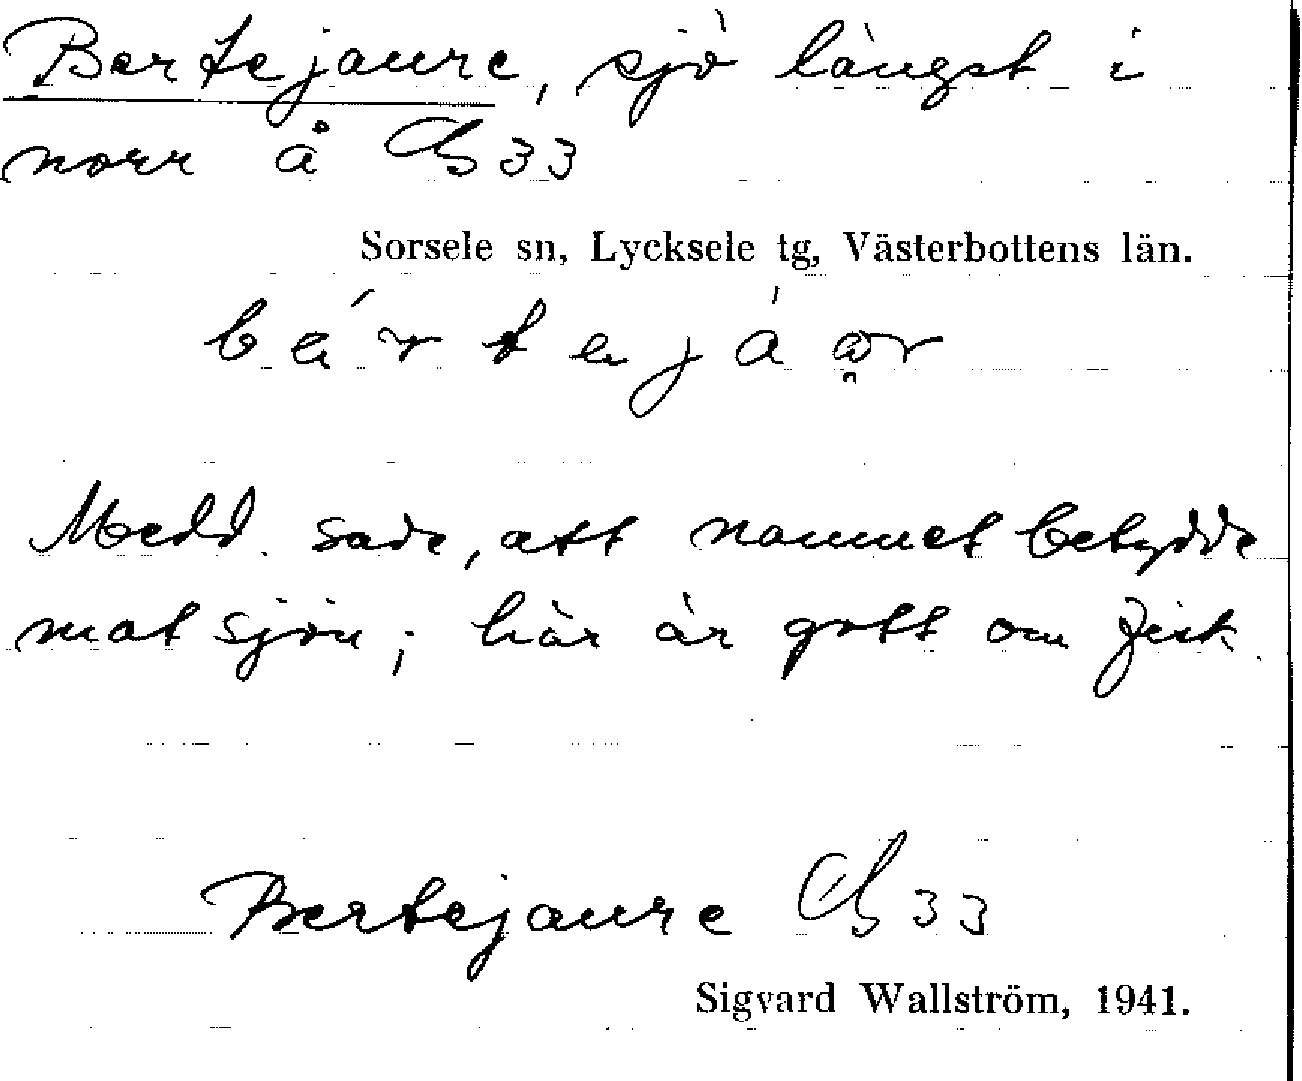 Bertejaure, sjö längst i
norr å Gb 33
Sorsele sn, Lycksele tg, Västerbottens län.
Medd. sade, att namnet betydde
matsjön; här är gott om fisk.
Bertejaure Gb 33
Sigvard Wallström, 1941.